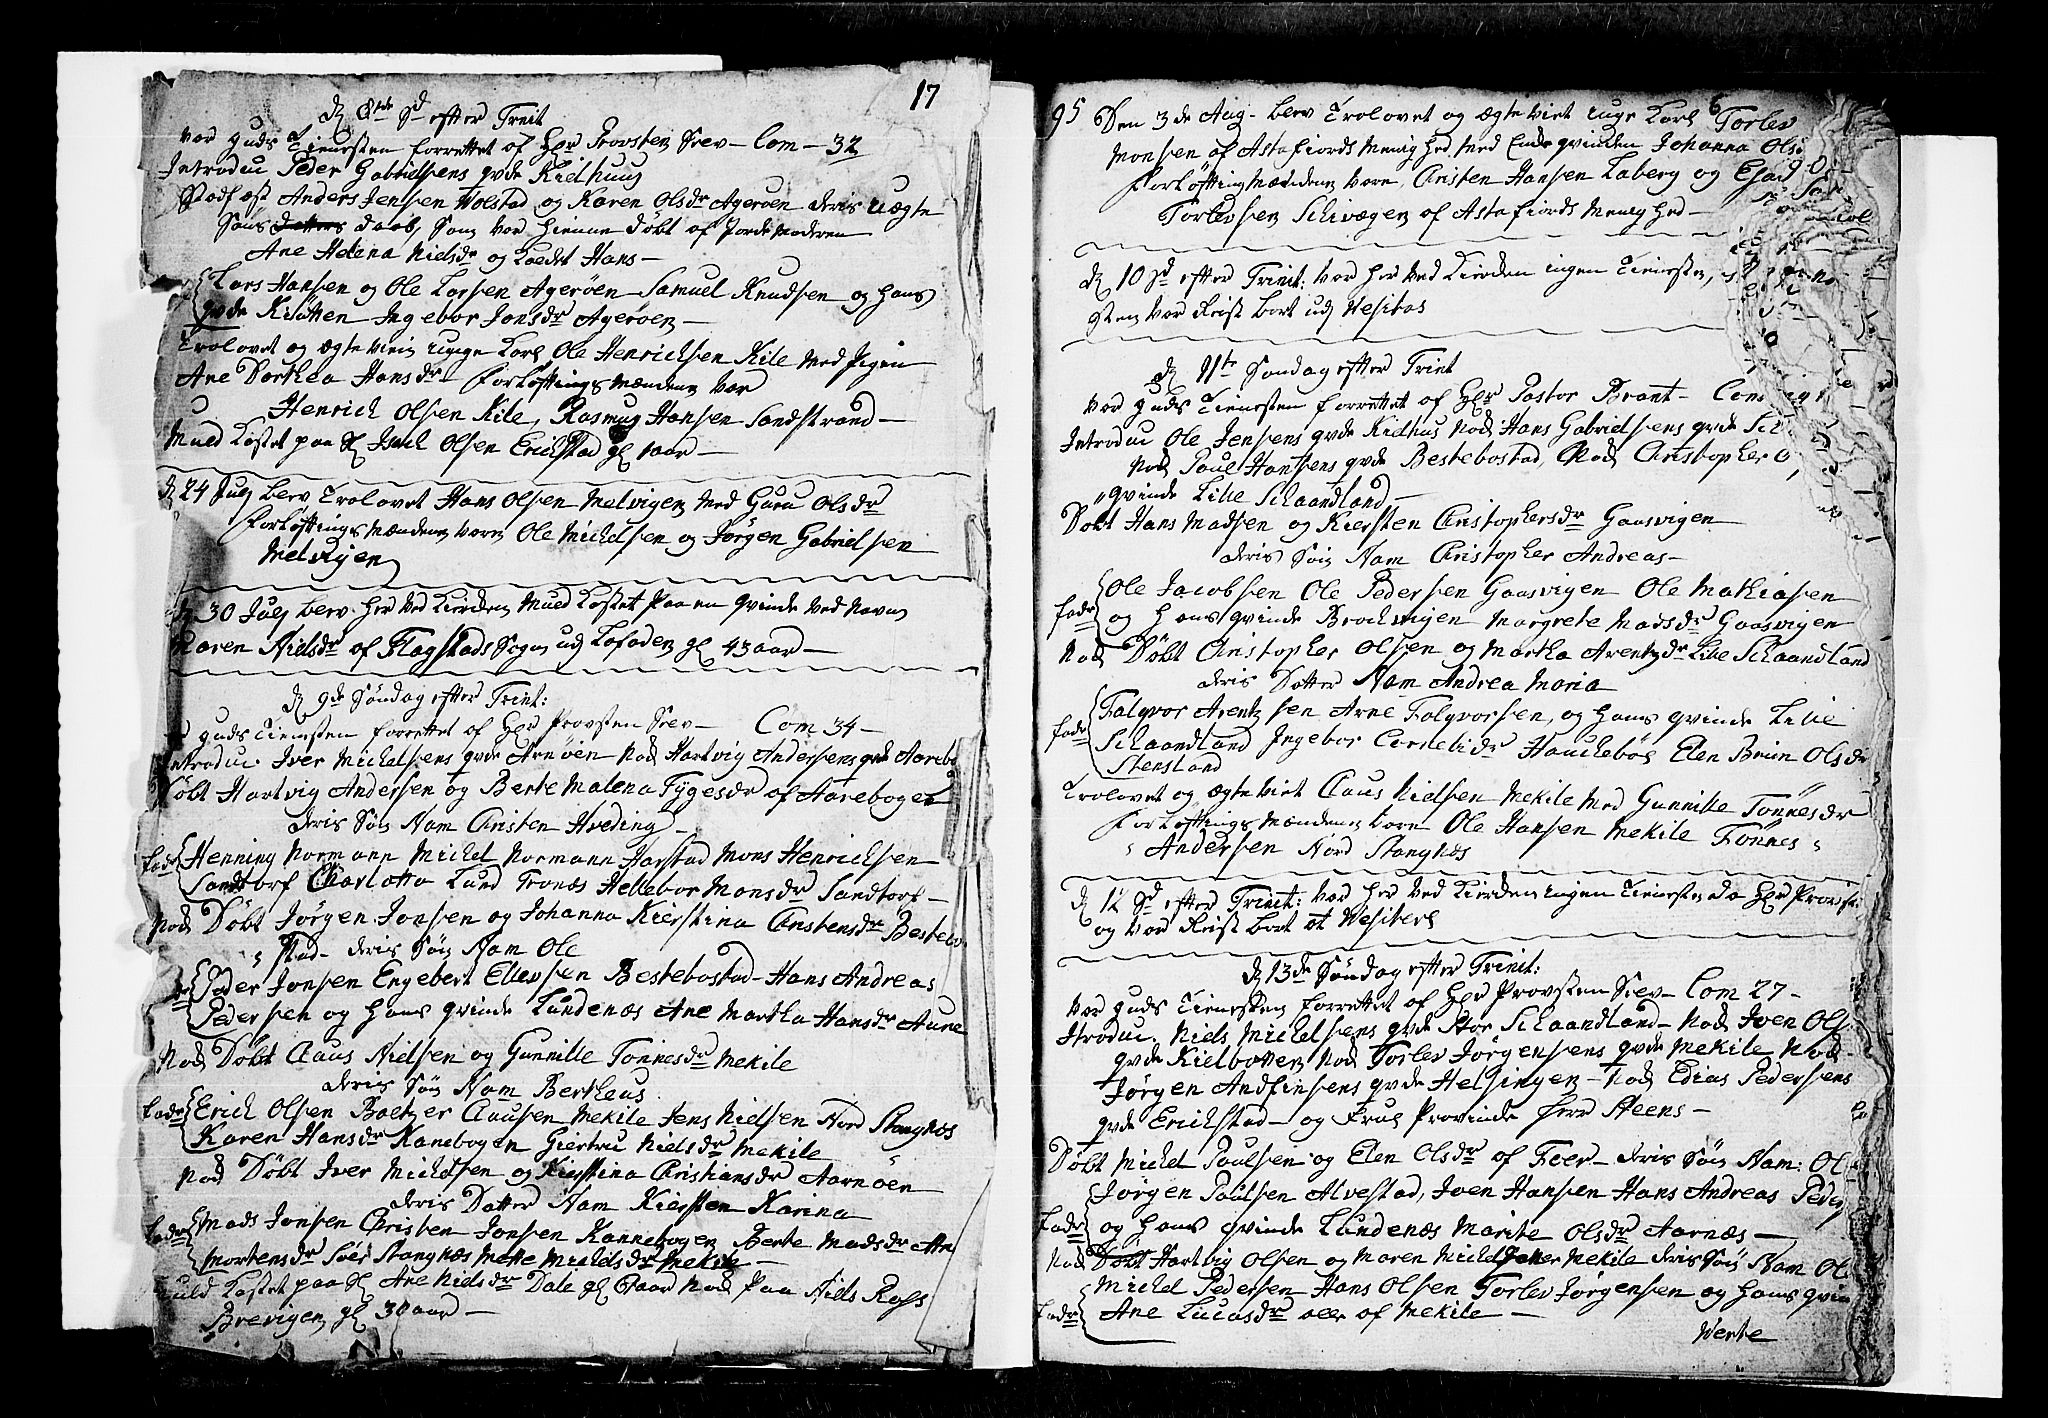 17
D 8de Sd efter Trint
var Guds Tienesten forrettet af Hr Provsten Srev - Com - 32
Introduc Peder Gabrielsens qvde Kielhuus
Stadfæst Anders Jensen Wolstad og Karen Olsdr Agerøen deris uægte
Jacob, som var hiemme døbt af Jordemoderen
Ane Helena Nielsdr og kaldet Hans -
Lars Hansen og Ole Larsen Agerøen Samuel Knudsen og hans
qvde Kiøtten Ingebor Jonsdr Agerøen -
Trolovet og ægteviet unge Karl Ole Henrichsen Kile med Pigen
Ane Dorthea Hansdr - Forløftings mændene var
Henrich Olsen Kile, Rasmus Hansen Sandstrand -
Muld kastet paa Olsen Erichstad gl 1 aar -
D 24 July blev Trolovet Hans Olsen Melvigen med Guru Olsdr
Forløftings mændene varn Ole Michelsen og Jørgen Gabrielsen
Melvigen
D 30 July blev her ved Kirken Muld kastet paa en qvinde ved navn
Karen Nielsdr af Flagstads Sogn ud Lofoden gl 43 aar -
D 9de Søndag efter Trint:
Guds Tienesten forrettet af Hr Provsten Srev - Com 34 -
Introduc. Iver Michelsens qvde Arnøen Nok Hartvig Andersens qvde Aarebo
Døbt Hartvig Andersen og Berte Malena Tygesdr af Aarebogen
deris Søn Nam Christen Hveding -
Fadr Henning Normann Michel Normann Harstad Mons Henrichsen
Sandtorf Charlotta Lund Tronæs Hellebor Monsdr Sandtorf -
Nok Døbt Jørgen Jonsen og Johanna Kierstina Christensdr Bestebo
stad - deris Søn Nam Ole
Peder Jonsen Engebert Ellevsen Bestebostad - Hans Andreas
Pedersen og hans qvinde Lundenæs Ane Martha Hansdr Aune
Nok Døbt Claus Nielsen og Gunnille Tønnesdr Mekile
deris Søn Nam Bertheus
Fadr Erich Olsen Baltzer Clausen Mekile Jens Nielsen Nord Stangnæs
Karen Hansdr Kanebogen Giertru Nielsdr Mekile
Nok Døbt Iver Michelsen og Kirstina Christiansdr Aarnøen
deris Datter Nam Kiersten Karina
Fadr Mads Jonsen Christen Jonsen Kannebogen Berte Madsdr
Mortensdr Sør Stangnæs Mette Michelsdr Mekile -
Muld kastet paa Ane Nielsdr Dale gl aar Nok Paa Niels Ross
Brevigen gl 30 aar -
95 Den 3de Aug. blev Trolovet og ægteviet unge Karl Torlev
Monsen af Astafiords Menighed med Enke qvinden Johanna Ols
Forløftings Mændene varn, Christen Hansen Laberg og
Torlevsen Schivaagen af Astafiords Menighed -
D 10 Sd efter Trinit: var her ved Kirken ingen Tieneste,
Presten var Reist bort ud Vesitas
D 11te Søndag efter Trint
var Guds Tienesten forrettet af Hr Pastor Brant - Com
Introduc Ole Jensens qvde Kielhus Nok Hans Gabrielsens qvde
Nok Poul Hansens qvde Bestebostad, Nok Christopher
qvinde Lille Schaandland -
Døbt Hans Madsen og Kiersten Christophersdr Gaasvigen
deris Søn Nam Christopher Andreas -
Fadr Ole Jacobsen Ole Pedersen Gaasvigen Ole Mathiasen
og hans qvinde Brochvigen Margrete Madsdr Gaasvigen
Nok Døbt Christopher Olsen og Martha Arentzdr Lille Schaandland
deris Datter Nam Andrea Maria
Fadr Falqvor Arentzsen Arne Falqvorsen, og hans qvinde Lille
Schaandland Ingebor Cornelidr Hauckebøe Elen Bruun Olsdr
Stensland
Trolovet og ægteviet Claus Nielsen Mekile med Gunnille Tønnesdr
Forløftings Mændene varn Ole Hansen Mekile Tønnes
Andersen Nord Stangnæs
D 12 Sd efter Trinit: var her ved Kirken ingen Tieneste da Hr Provst
og var Reist bort at Vesitere
D 13de Søndag efter Trinit:
var Guds Tienesten forrettet af Hr Provsten Srev - Com 27 -
Itroduc. Niels Michelsens qvde Stor Schaandland - Nok Iven Ols
qvde Kielbotten Nok Torlev Jørgensens qvde Mekile Nok
Jørgen Andfinsens qvde Helsingen - Nok Edias Pedersens
qvde Erichstad - og Frue Provinde Steens -
Døbt Michel Poulsen og Elen Olsdr af Foer - deris Søn Nam: Ol
Jørgen Poulsen Alvestad, Iven Hansen Hans Andreas Peder
Fadr og hans qvinde Lundenæs Marite Olsdr Aarnæs -
Nok Døbt Hartvig Olsen og Maren Mekile deris Søn Nam Ol
Michel Pedersen Hans Olsen Torlev Jørgensen og hans qvin
Fadr Ane Lucasdr alle af Mekile -
Verte